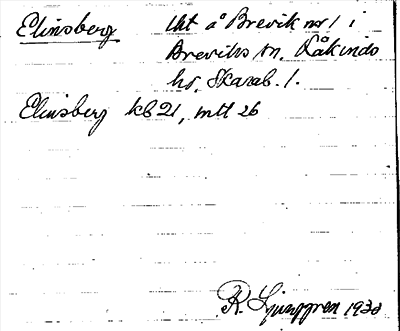 Elinsberg Lht å Brevik nr 1 i
Breviks sn, Kåkinds
hd, Skarab. l.
Elinsberg kb 21, mtl 26
R. Ljunggren 1930